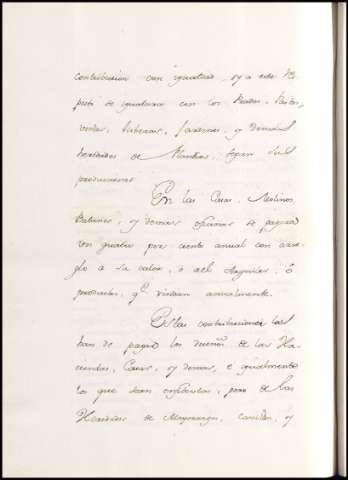 contribucion con igualdad, y a este res
peto se igualaran con los Prados, Pastos,
ventas, Riberas, y demas
heredades de Plantios, segun sus
producciones.
En las Casas, Molinos,
Batanes, y demas oficinas se pagará
un quatro por ciento anual con arre-
glo a su valor, ó del Alquiler, ó
productos, qᵉ rindan anualmente.
Estas contribuciones las
han de pagar los dueños de las Ha-
ciendas, Casas, y demas, e igualmente
los que sean, pero de las
de Mayorazgo, y